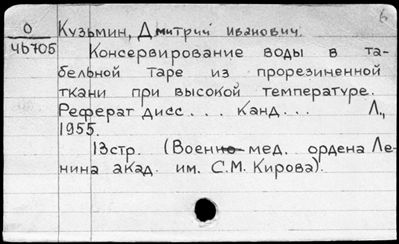 О Кузьмин, Дмитрий Иванович.
4б705 Консервирование воды в та-
бельной таре из прорезиненной
ткани при высокой температуре.
Реферат дисс... Канд... Л.,
1955.
13стр. (Военно-мед. ордена Ле-
нина акад. им. С.М. Кирова).